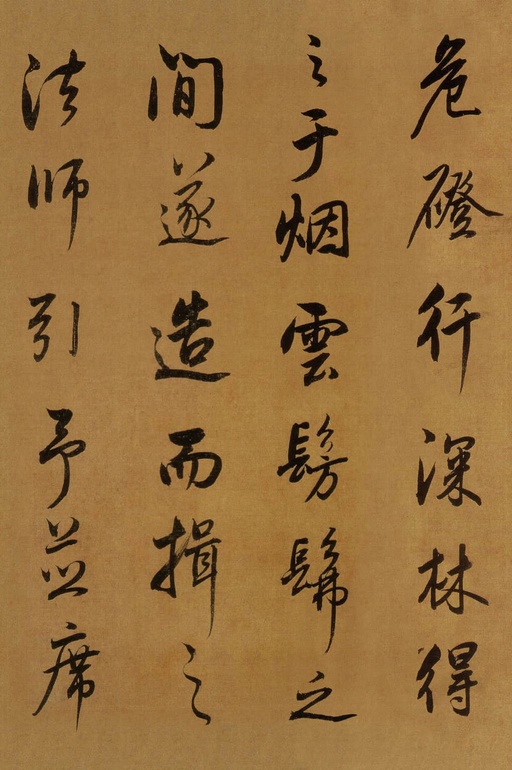 危磴行深林得
之于烟雲髣髴之
間遂造而揖之
法師引予並席